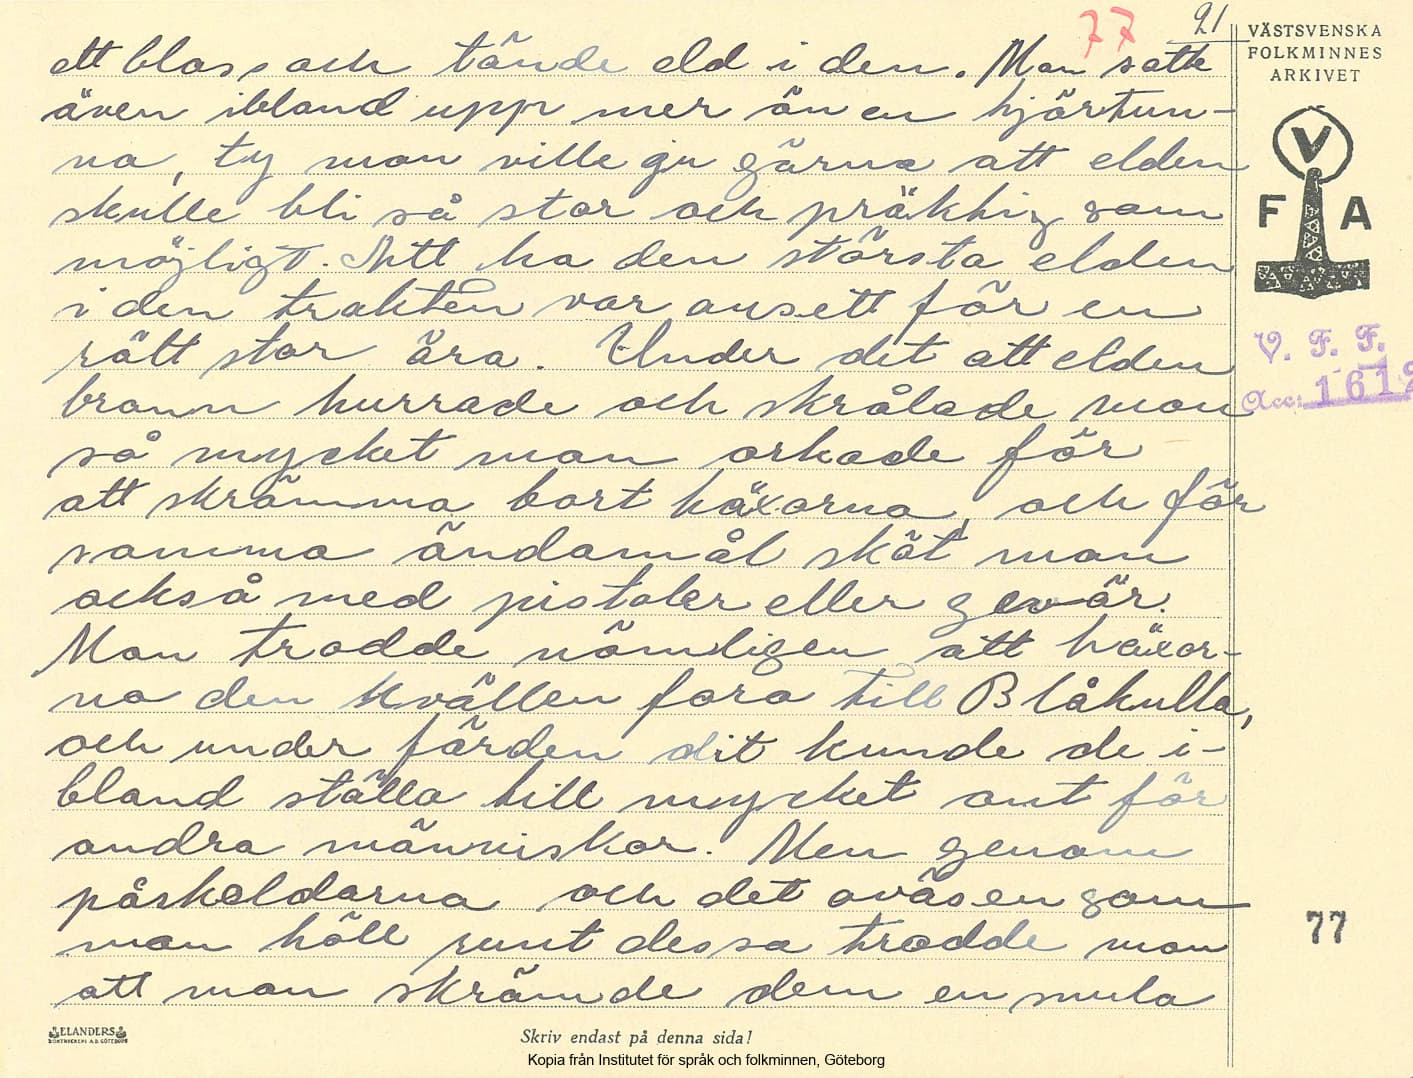 77
21
VÄSTSVENSKA
FOLKMINNES
ARKIVET
V
F A
V. F. F.
Acc: 1612
ett bloss och tände eld i den. Man satte
även ibland upp mer än en tjärtun-
na, ty man ville ju gärna att elden
skulle bli så stor och präktig som
möjligt. Att ha den största elden
i den trakten var ansett för en
rätt stor ära. Under det att elden
brann hurrade och skrålade man
så mycket man orkade för
att skrämma bort häxorna, och för
samma ändamål sköt man
också med pistoler eller gevär.
Man trodde nämligen att häxor-
na den kvällen foro till Blåkulla,
och under färden dit kunde de i-
bland ställa till mycket ont för
andra människor. Men genom
påskeldarna och det oväsen som
man höll runt dessa trodde man
att man skrämde dem en smula
77
ELANDERS
BOKTRYCKERI A.B. GÖTEBORG
Skriv endast på denna sida!
Kopia från Institutet för språk och folkminnen, Göteborg